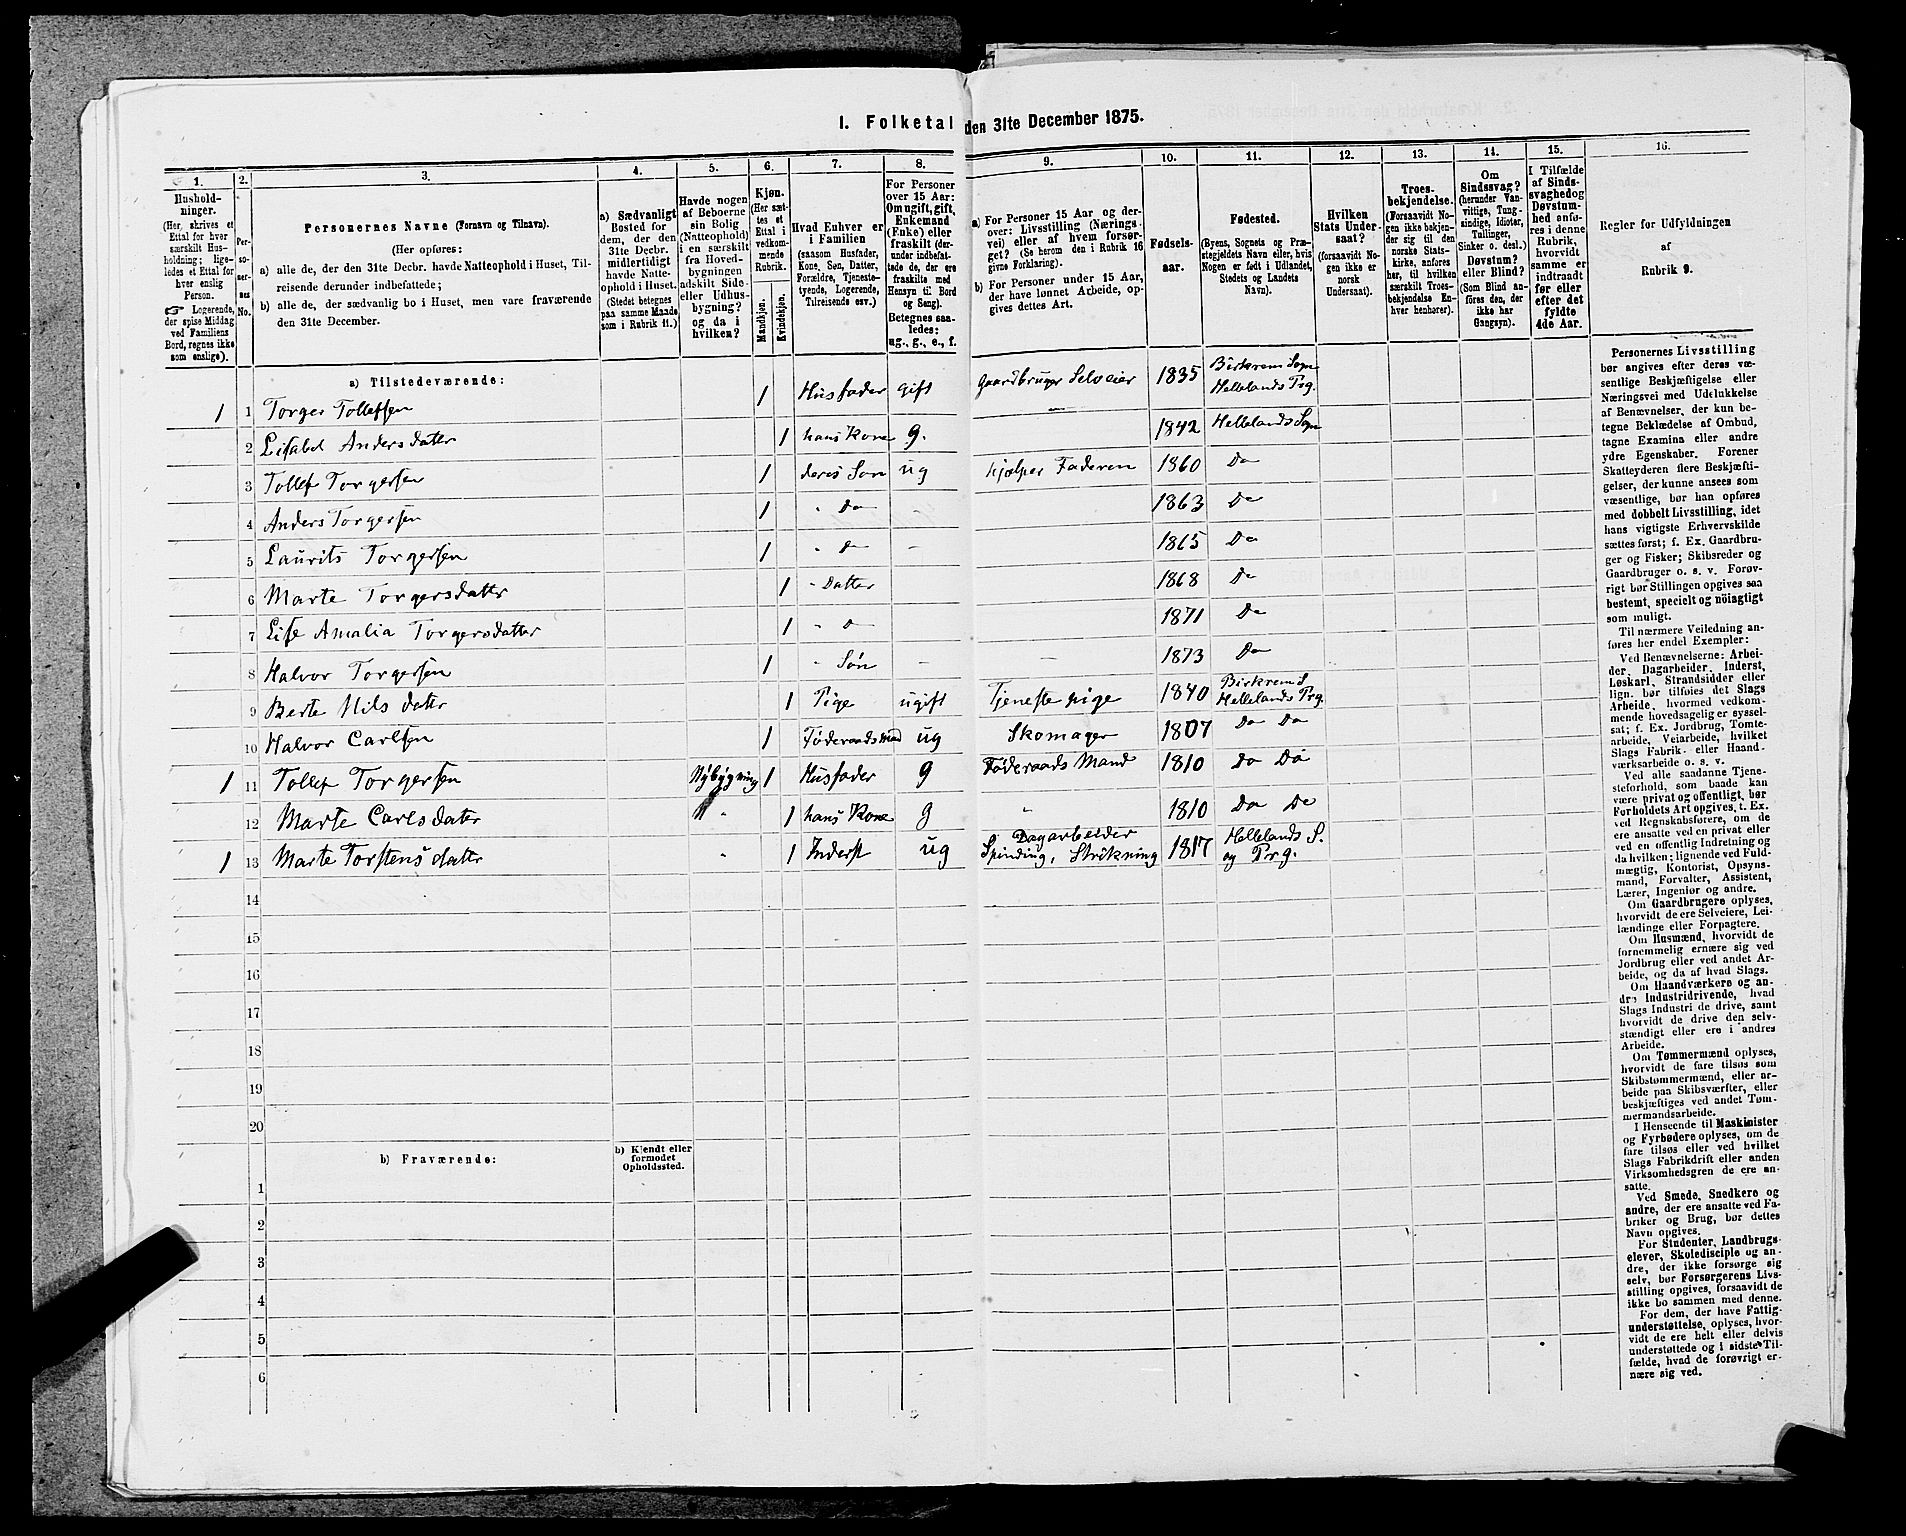 I. Folketal den 31te December 1875.
1. 2. 3. 4. 5. 6. 7. 8. 9. 10. 11. 12. 13. 14. 15. 16.
Hushold-
ninger.
(Her, skrives et
Ettal for hver
særskilt Hus-
holdning; lige-
ledes et Ettal for
hver enslig
Person.
☞ Logerende,
der spise Middag
ved Familiens
Bord, regnes ikke
som enslige).
Per-
so-
ner-
nes
No.
Personernes Navne (Fornavn og Tilnavn).
(Her opføres:
a) alle de, der den 31te Decbr. havde Natteophold i Huset, Til-
reisende derunder indbefattede;
b) alle de, der sædvanlig bo i Huset, men vare fraværende
den 31te December.
a) Sædvanligt
Bosted for
dem, der den
31te Decbr.
midlertidigt
havde Natte-
ophold i Huset.
(Stedet betegnes
paa samme Maade
som i Rubrik 11.)
Havde nogen
af Beboerne
sin Bolig
(Natteophold)
i en særskilt
fra Hoved-
bygningen
adskilt Side-
eller Udhus-
bygning?
og da i
hvilken?
Kjøn.
(Her sæt-
tes et
Ettal i
vedkom-
mende
Rubrik.
Mandkjøn.
Kvindekjøn.
Hvad Enhver er
i Familien
(saasom Husfader,
Kone, Søn, Datter,
Forældre, Tjeneste-
tyende, Logerende,
Tilreisende osv.)
For Personer
over 15 Aar:
Om ugift, gift,
Enkemand
(Enke) eller
fraskilt (der-
under indbefat-
tede de, der ere
fraskilte med
Hensyn til Bord
og Seng).
Betegnes saa-
ledes:
ug., g., e., f.
a) For Personer 15 Aar og der-
over: Livsstilling (Nærings-
vei) eller af hvem forsør-
get? (Se herom den i Rubrik 16
givne Forklaring).
b) For Personer under 15 Aar,
der have lønnet Arbeide, op-
gives dettes Art.
Fødsels-
aar.
Fødested.
(Byens, Sognets og Præ-
stegjeldets Navn eller, hvis
Nogen er født i Udlandet,
Stedets og Landets
Navn).
Hvilken
Stats Under-
saat?
(forsaavidt No-
gen ikke er
norsk
Undersaat).
Troes-
bekjendelse.
(Forsaavidt No-
gen ikke bekjen-
der sig til den
norske Stats-
kirke, anføres
her, til hvilken
særskilt Troes-
bekjendelse En-
hver henhører).
Om
Sindssvag?
(herunder Van-
vittige, Tung-
sindige, Idioter,
Tullinger,
Sinker o. desl.)
Døvstum?
eller Blind?
(Som Blind an-
føres den, der
ikke har
Gangsyn).
I Tilfælde
af Sinds-
svaghed og
Døvstum-
hed anfø-
res i denne
Rubrik,
hvorvidt
samme er
indtraadt
før eller
efter det
fyldte
4de Aar.
Regler for Udfyldningen
af
Rubrik 9.
a) Tilstedeværende:
1 1 Torger Tollefsen 1 Husfader gift Gaardbruger Selveier 1835 Birkrem Sogn Hellelands Prg.
2 Lisabet Andersdatter 1 hans Kone g. " 1842 Hellelands Sogn
3 Tollef Torgersen 1 deres Søn ug hjælper Faderen 1860 Do
4 Anders Torgersen 1 " Do – 1863 Do
5 Laurits Torgersen 1 " d – 1865 Do
6 Marte Torgersdatter 1 " Datter 1868 Do
7 Lise Amalia Torgersdatter 1 " d 1871 Do
8 Halvor Torgersen 1 " Søn – – 1873 Do
9 Berte Nilsdatter 1 Pige ugift Tjenestepige 1840 Birkrem S. Hellelands Prg.
10 Halvor Carlsen 1 Føderaadsmand ug Skomager 1807 Do Do
1 11 Tollef Torgersen Nybygning 1 Husfader g Føderaads Mand 1810 Do Do
12 Marte Carlsdatter " 1 hans Kone g " 1810 Do Do
1 13 Marte Torstensdatter " 1 Inderst ug Dagarbeider Spinding, Strikning 1817 Hellelands S. og Prg.
14
15
16
17
18
19
20
b) Fraværende:
b) Kjendt eller
formodet
Opholdssted.
1
2
3
4
5
6
Personernes Livsstilling
bør angives efter deres væ-
sentlige Beskjæftigelse eller
Næringsvei med Udelukkelse
af Benævnelser, der kun be-
tegne Beklædelse af Ombud,
tagne Examina eller andre
ydre Egenskaber. Forener
Skatteyderen flere Beskjæfti-
gelser, der kunne ansees som
væsentlige, bør han opføres
med dobbelt Livsstilling, idet
hans vigtigste Erhvervskilde
sættes først; f. Ex. Gaardbru-
ger og Fisker; Skibsreder og
Gaardbruger o. s. v. Forøv-
rigt bør Stillingen opgives saa
bestemt, specielt og nöiagtigt
som muligt.
Til nærmere Veiledning an-
føres her endel Exempler:
Ved Benævnelserne: Arbei-
der, Dagarbeider, Inderst,
Løskarl, Strandsidder eller
lign. bør tilføies det Slags
Arbeide, hvormed vedkom-
mende hovedsagelig er syssel-
sat; f. Ex. Jordbrug, Tomte-
arbeide, Veiarbeide, hvilket
Slags Fabrik- eller Haand-
værksarbeide o. s. v.
Ved alle saadanne Tjene-
steforhold, som baade kan
være privat og offentligt, bør
Forholdets Art opgives, t. Ex.
ved Regnskabsførere, om de
ere ansatte ved en privat eller
ved en offentlig Indretning og
da hvilken; lignende ved Fuld-
mægtig, Kontorist, Opsyns-
mand, Forvalter, Assistent,
Lærer, Ingeniør og andre.
Om Gaardbrugere oplyses,
hvorvidt de ere Selveiere, Lei-
lændinge eller Forpagtere.
Om Husmænd, hvorvidt de
fornemmelig ernære sig ved
Jordbrug eller ved andet Ar-
beide, og da af hvad Slags.
Om Haandværkere og an-
dre Industridrivende, hvad
Slags Industri de drive, samt
hvorvidt de drive den selv-
stændigt eller ere i andres
Arbeide.
Om Tømmermænd oplyses,
hvorvidt de fare tilsøs som
Skibstømmermænd, eller ar-
beide paa Skibsværfter, eller
beskjæftiges ved andet Tøm-
mermandsarbeide.
I Henseende til Maskinister
og Fyrbødere oplyses, om de
fare tilsøs eller ved hvilket
Slags Fabrikdrift eller anden
Virksomhedsgren de ere an-
satte.
Ved Smede, Snedkere og
andre, der ere ansatte ved Fa-
briker og Brug, bør dettes
Navn opgives.
For Studenter, Landbrugs-
elever, Skoledisciple og an-
dre, der ikke forsørge sig
selv, bør Forsørgerens Livs-
stilling opgives, forsaavidt de
ikke bo sammen med denne.
For dem, der have Fattig-
understøttelse, oplyses, hvor-
vidt de ere helt eller delvis
understøttede og i sidste Til-
fælde, hvad de forøvrigt er-
nære sig ved.